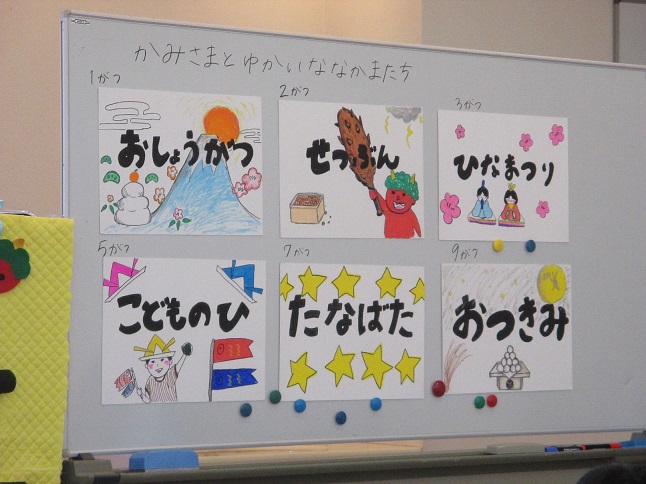 かみさまとゆかいななかまたち
1がつ
おしょうがつ
2がつ
せつぶん
3がつ
ひなまつり
5がつ
こどものひ
7がつ
たなばた
9がつ
おつきみ